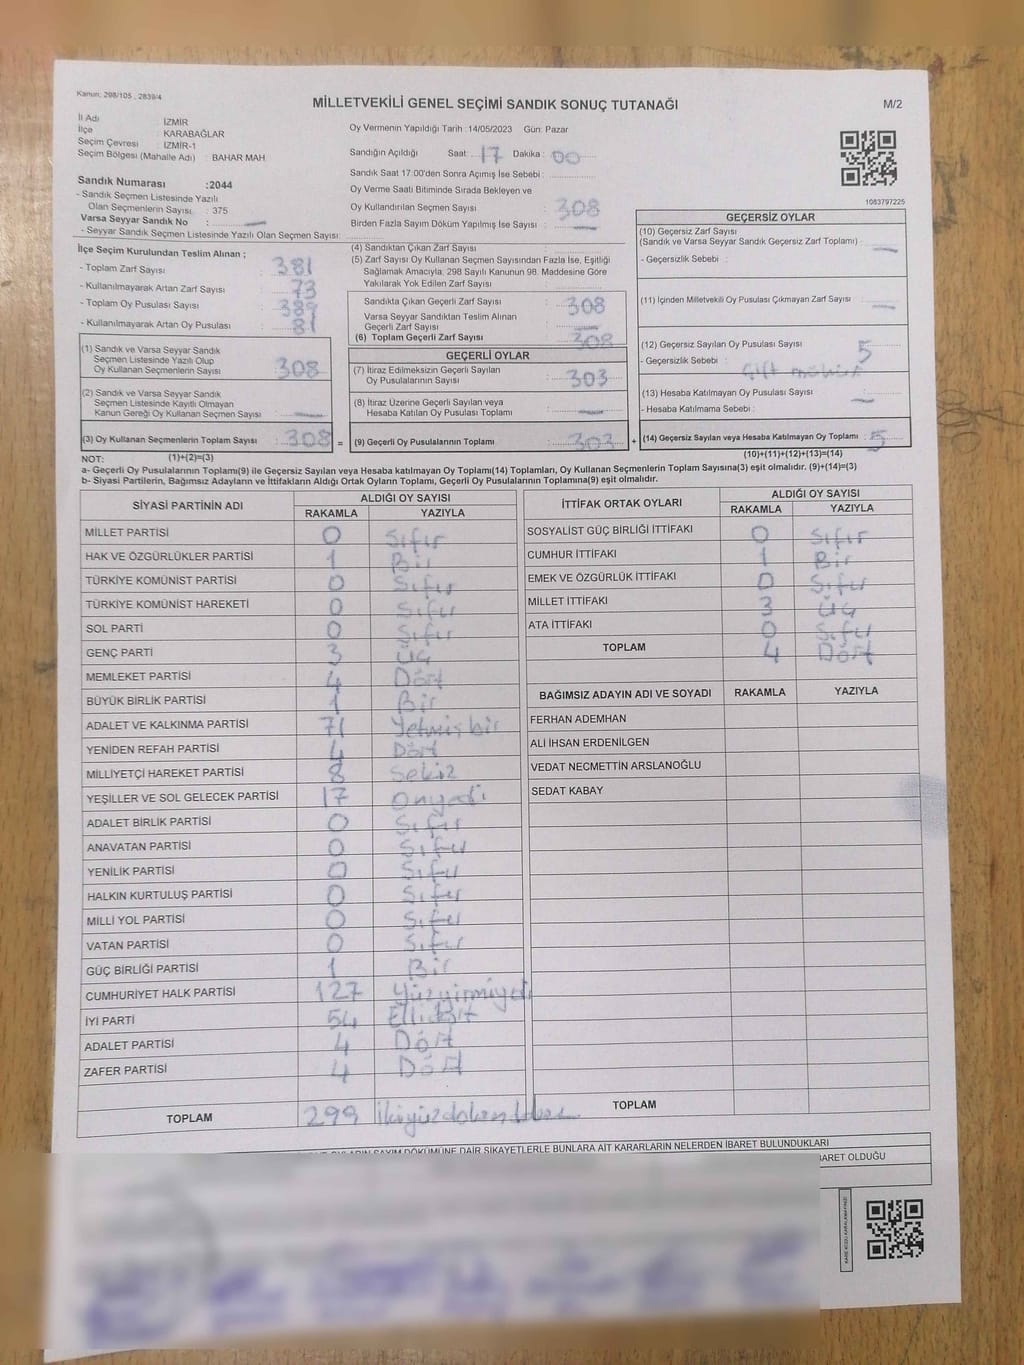 Kanun: 298/105 , 2839/4
MİLLETVEKİLİ GENEL SEÇİMİ SANDIK SONUÇ TUTANAĞI
M/2
İl Adı : İZMİR
İlçe : KARABAĞLAR
Seçim Çevresi : İZMİR-1
Seçim Bölgesi (Mahalle Adı) : BAHAR MAH.
Sandık Numarası :2044
- Sandık Seçmen Listesinde Yazılı
Olan Seçmenlerin Sayısı : 375
Varsa Seyyar Sandık No : —
- Seyyar Sandık Seçmen Listesinde Yazılı Olan Seçmen Sayısı:
Oy Vermenin Yapıldığı Tarih :14/05/2023 Gün: Pazar
Sandığın Açıldığı Saat: 17 Dakika : 00
Sandık Saat 17.00'den Sonra Açımış İse Sebebi :
Oy Verme Saati Bitiminde Sırada Bekleyen ve
Oy Kullandırılan Seçmen Sayısı : 308
Birden Fazla Sayım Döküm Yapılmış İse Sayısı : —
1063797225
İlçe Seçim Kurulundan Teslim Alınan ;
- Toplam Zarf Sayısı : 381
- Kullanılmayarak Artan Zarf Sayısı : 73
- Toplam Oy Pusulası Sayısı : 389
- Kullanılmayarak Artan Oy Pusulası : 81
(1) Sandık ve Varsa Seyyar Sandık
Seçmen Listesinde Yazılı Olup
Oy Kullanan Seçmenlerin Sayısı : 308
(2) Sandık ve Varsa Seyyar Sandık
Seçmen Listesinde Kayıtlı Olmayan
Kanun Gereği Oy Kullanan Seçmen Sayısı : —
(3) Oy Kullanan Seçmenlerin Toplam Sayısı : 308 =
(4) Sandıktan Çıkan Zarf Sayısı :
(5) Zarf Sayısı Oy Kullanan Seçmen Sayısından Fazla İse, Eşitliği
Sağlamak Amacıyla; 298 Sayılı Kanunun 98. Maddesine Göre
Yakılarak Yok Edilen Zarf Sayısı :
Sandıkta Çıkan Geçerli Zarf Sayısı : 308
Varsa Seyyar Sandıktan Teslim Alınan
Geçerli Zarf Sayısı : —
(6) Toplam Geçerli Zarf Sayısı : 308
GEÇERLİ OYLAR
(7) İtiraz Edilmeksizin Geçerli Sayılan
Oy Pusulalarının Sayısı : 303
(8) İtiraz Üzerine Geçerli Sayılan veya
Hesaba Katılan Oy Pusulası Toplamı : —
(9) Geçerli Oy Pusulalarının Toplamı : 303 +
GEÇERSİZ OYLAR
(10) Geçersiz Zarf Sayısı
(Sandık ve Varsa Seyyar Sandık Geçersiz Zarf Toplamı) : —
- Geçersizlik Sebebi :
(11) İçinden Milletvekili Oy Pusulası Çıkmayan Zarf Sayısı : —
(12) Geçersiz Sayılan Oy Pusulası Sayısı : 5
- Geçersizlik Sebebi : Çift mühür
(13) Hesaba Katılmayan Oy Pusulası Sayısı : —
- Hesaba Katılmama Sebebi :
(14) Geçersiz Sayılan veya Hesaba Katılmayan Oy Toplamı : 5
NOT: (1)+(2)=(3)
(10)+(11)+(12)+(13)=(14)
a- Geçerli Oy Pusulalarının Toplamı(9) ile Geçersiz Sayılan veya Hesaba katılmayan Oy Toplamı(14) Toplamları, Oy Kullanan Seçmenlerin Toplam Sayısına(3) eşit olmalıdır. (9)+(14)=(3)
b- Siyasi Partilerin, Bağımsız Adayların ve İttifakların Aldığı Ortak Oyların Toplamı, Geçerli Oy Pusulalarının Toplamına(9) eşit olmalıdır.
SİYASİ PARTİNİN ADI ALDIĞI OY SAYISI
RAKAMLA YAZIYLA
MİLLET PARTİSİ 0 Sıfır
HAK VE ÖZGÜRLÜKLER PARTİSİ 1 Bir
TÜRKİYE KOMÜNİST PARTİSİ 0 Sıfır
TÜRKİYE KOMÜNİST HAREKETİ 0 Sıfır
SOL PARTİ 0 Sıfır
GENÇ PARTİ 3 Üç
MEMLEKET PARTİSİ 4 Dört
BÜYÜK BİRLİK PARTİSİ 1 Bir
ADALET VE KALKINMA PARTİSİ 71 Yetmişbir
YENİDEN REFAH PARTİSİ 4 Dört
MİLLİYETÇİ HAREKET PARTİSİ 8 Sekiz
YEŞİLLER VE SOL GELECEK PARTİSİ 17 Onyedi
ADALET BİRLİK PARTİSİ 0 Sıfır
ANAVATAN PARTİSİ 0 Sıfır
YENİLİK PARTİSİ 0 Sıfır
HALKIN KURTULUŞ PARTİSİ 0 Sıfır
MİLLİ YOL PARTİSİ 0 Sıfır
VATAN PARTİSİ 0 Sıfır
GÜÇ BİRLİĞİ PARTİSİ 1 Bir
CUMHURİYET HALK PARTİSİ 127 Yüzyirmiyedi
İYİ PARTİ 54 Ellidört
ADALET PARTİSİ 4 Dört
ZAFER PARTİSİ 4 Dört
TOPLAM 299 İkiyüzdoksandokuz
İTTİFAK ORTAK OYLARI ALDIĞI OY SAYISI
RAKAMLA YAZIYLA
SOSYALİST GÜÇ BİRLİĞİ İTTİFAKI 0 Sıfır
CUMHUR İTTİFAKI 1 Bir
EMEK VE ÖZGÜRLÜK İTTİFAKI 0 Sıfır
MİLLET İTTİFAKI 3 Üç
ATA İTTİFAKI 0 Sıfır
TOPLAM 4 Dört
BAĞIMSIZ ADAYIN ADI VE SOYADI RAKAMLA YAZIYLA
FERHAN ADEMHAN
ALİ İHSAN ERDENİLGEN
VEDAT NECMETTİN ARSLANOĞLU
SEDAT KABAY
TOPLAM
OYLARIN SAYIM DÖKÜMÜNE DAİR ŞİKAYETLERLE BUNLARA AİT KARARLARIN NELERDEN İBARET BULUNDUKLARI
İBARET OLDUĞU